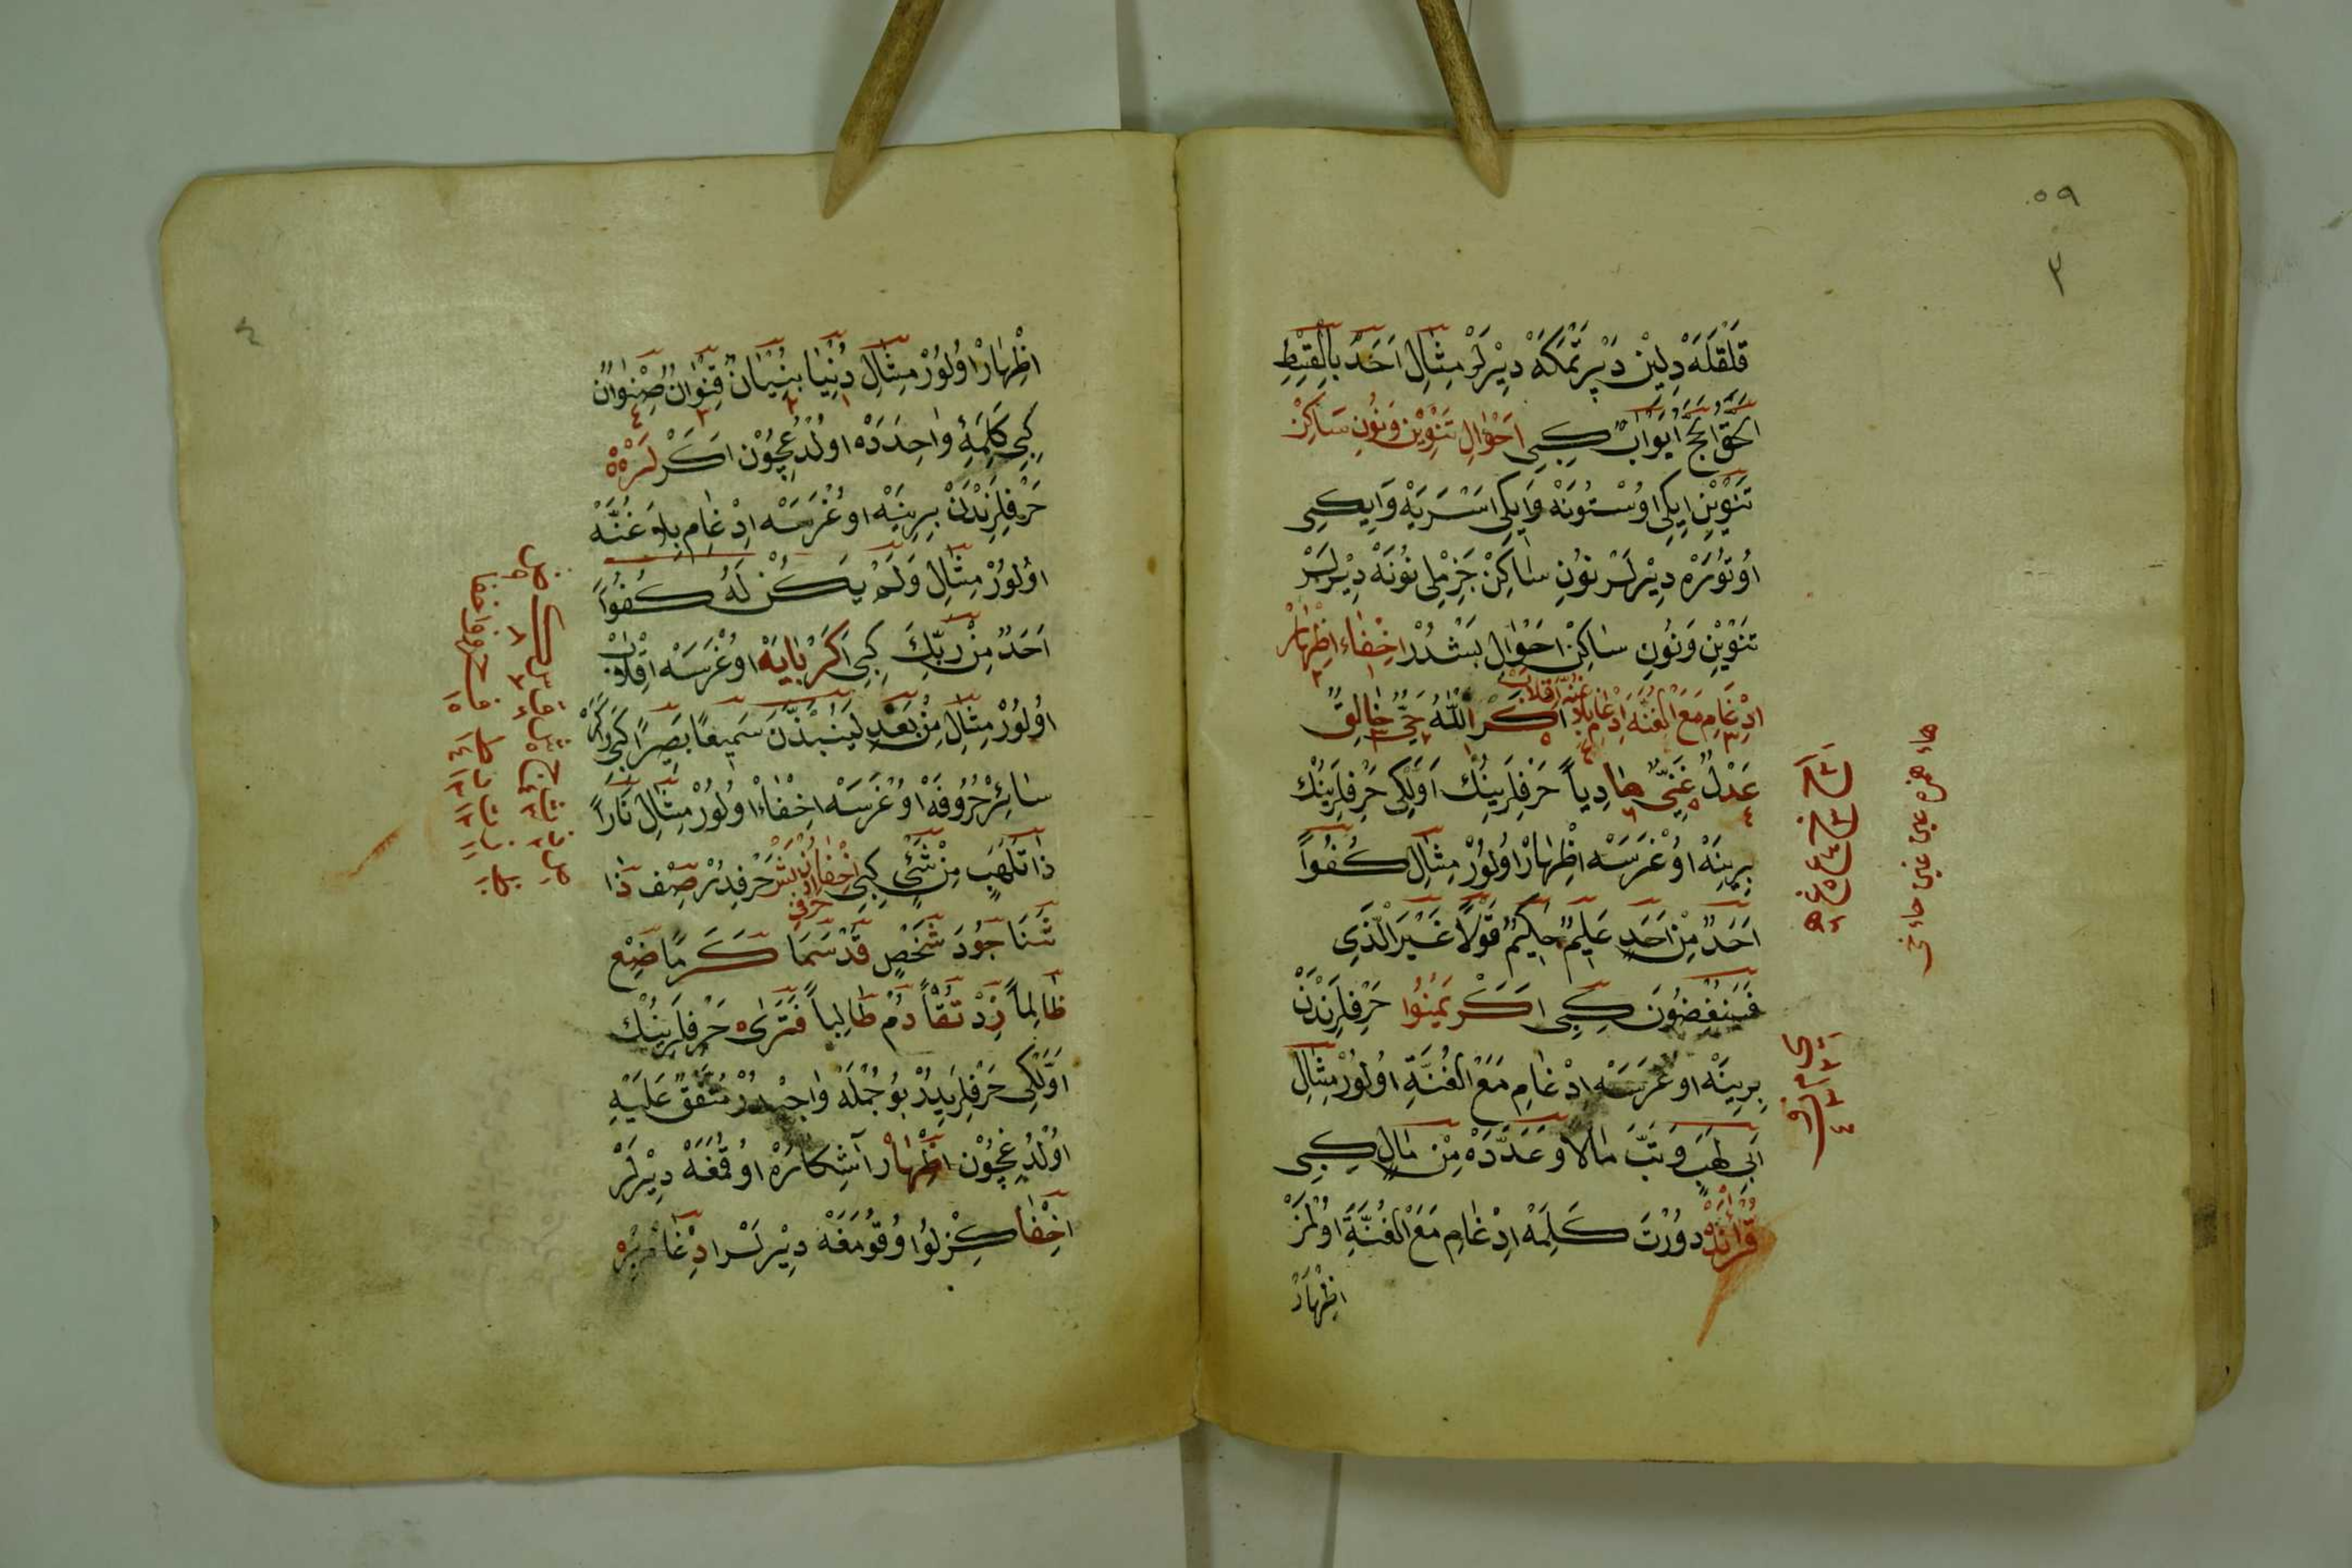 ٥٩
٣
قَلْقَلَهْ دِلِيْن دَپْرَتْمَكَهْ دِيْرلَرْ مِثٰالِ اَحَدْ بِالْقِسْطِ
الْحَقْ الْحَجْ اَبْوَابْ كِبِى اَحْوَالِ تَنْوِيْن وَنُونِ سَاكِنْ
تَنْوِيْن اِيكِى اوُسْتُونَهْ وَاِيكِى اَسْرَيَهْ وَاِيكِى
اُوتُورَهْ دِيْرلَرْ نُونِ سٰاكِنْ جَزِمْلِى نُونَهْ دِيْرلَرْ
تَنْوِيْن وَنُونِ سٰاكِنْ اَحْوٰالِ بَشْدُرْ اِخْفٰاء اِظْهٰارْ
اِدْغٰامِ مَعَ الْغُنَّه اِدْغٰامِ بِلاَ غُنَّه اِقْلاَبْ اَكَرْ اَللّٰهُ حَىٌّ خٰالِقٌ
عَدْلٌ غَنِىٌّ هٰادِياً حَرْفِلَرِينُكْ اَوَّلْكِى حَرْفِلَرِينُكْ
بِرِينَهْ اوُغْرَسَهْ اِظْهٰارْ اوُلُورْ مِثٰالِ كُفُواً
اَحَدٌ مِنْ اَحَدٍ عَلِيمٌ حَكِيمٌ قَوْلاً غَيْرَ الَّذِى
فَسَيُنْغِضُونَ كِبِى اَكَرْ يَمِنُوا حَرْفِلَرِنْدَنْ
بِرِينَهْ اوُغْرَسَهْ اِدْغٰامِ مَعَ الْغُنَّةِ اوُلُورْ مِثٰالِ
اَبِى لَهَبٍ وَتَبَّ مٰالاً وَعَدَّدَهْ مِنْ مٰالٍ كِبِى
قُرْاٰنْدَهْ دوُرْتَ كَلِمَهْ اِدْغٰامِ مَعَ الْغُنَّةِ اوُلْمَزْ
اِظْهَارْ
هاء همزه عين غين حاء خى
٤
اِظْهٰارْ اوُلُورْ مِثٰالِ دُنْيٰا بُنْيٰانٌ قِنْوٰانٌ صِنْوٰانٌ
كِبِى كَلِمَۀِ وٰاحِدَدَهْ اولْدُغِچُوْن اَكَرْ لَرَهْ
حَرْفِلَرِنْدَنْ بِرِينَهْ اوُغْرَسَهْ اِدْغٰامِ بِلاَ غُنَّهْ
اوُلُورْ مِثٰالِ وَلَمْ يَكُنْ لَهُ كُفُواً
اَحَدٌ مِنْ رَبِّكَ كِبِى اَكَرْ بٰايَهْ اوُغْرَسَهْ اِقْلاَبْ
اوُلُورْ مِثٰالِ مِنْ بَعْدِ لَيُنْبَذَنَّ سَمِيعًا بَصِيرًا كِبِى وَاَكَرْ
سٰائِرْ حُرُوفَهْ اوُغْرَسَهْ اِخْفٰاءْ اوُلُورْ مِثٰالِ نَاراً
ذَاتَ لَهَبٍ مِنْ شَىْءٍ كِبِى اِخْفٰا اوُنْ بَشْ حَرْفِدُرْ صِفْ ذَا
حرفى
ثَنَا جُودَ شَخْصٍ قَدْ سَمَا كَرَمًا ضِعْ
ظٰالِماً زِدْ تُقاً دُمْ طٰالِباً فَتَرٰى حَرْفِلَرِينُكْ
اَوَّلْكِى حَرْفِلَرِيدُرْ بُوجُمْلَهْ وٰاجِبْدُرْ مُتَّفَقٌ عَلَيْهِ
اوُلْدُغِچُوْن اِظْهٰارْ آشِكَارَهْ اوُقُمَغَهْ دِيْرلَرْ
اِخْفٰا كِزْلُو اوُقُومَغَهْ دِيْرلَرْ اِدْغٰامْ بِرَهْ